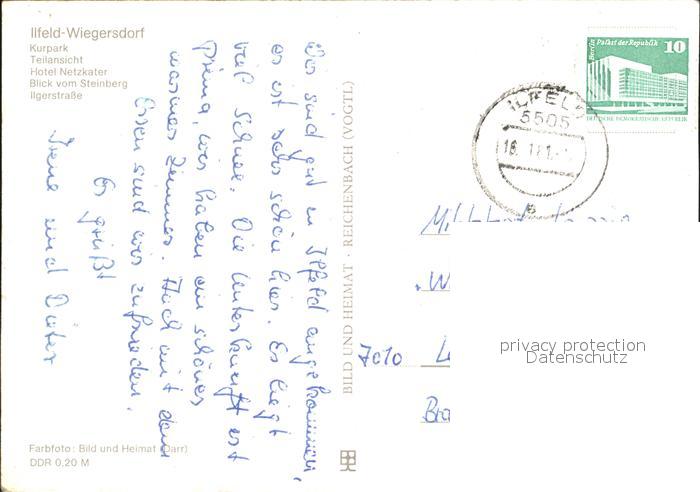 Ilfeld-Wiegersdorf
Kurpark
Teilansicht
Hotel Netzkater
Blick vom Steinberg
Ilgerstraße
Wir sind gut in Ilfeld angekommen,
es ist sehr schön hier. Es liegt
viel Schnee. Die Unterkunft ist
Prima, wir haben ein schönes
warmes Zimmer. Auch mit dem
Essen sind wir zufrieden.
Es grüßt
Irene und Dieter
Farbfoto: Bild und Heimat (Darr)
DDR 0,20 M
BILD UND HEIMAT · REICHENBACH (VOGTL)
Berlin Palast der Republik 10
DEUTSCHE DEMOKRATISCHE REPUBLIK
ILFELD
5505
b
7010
privacy protection
Datenschutz